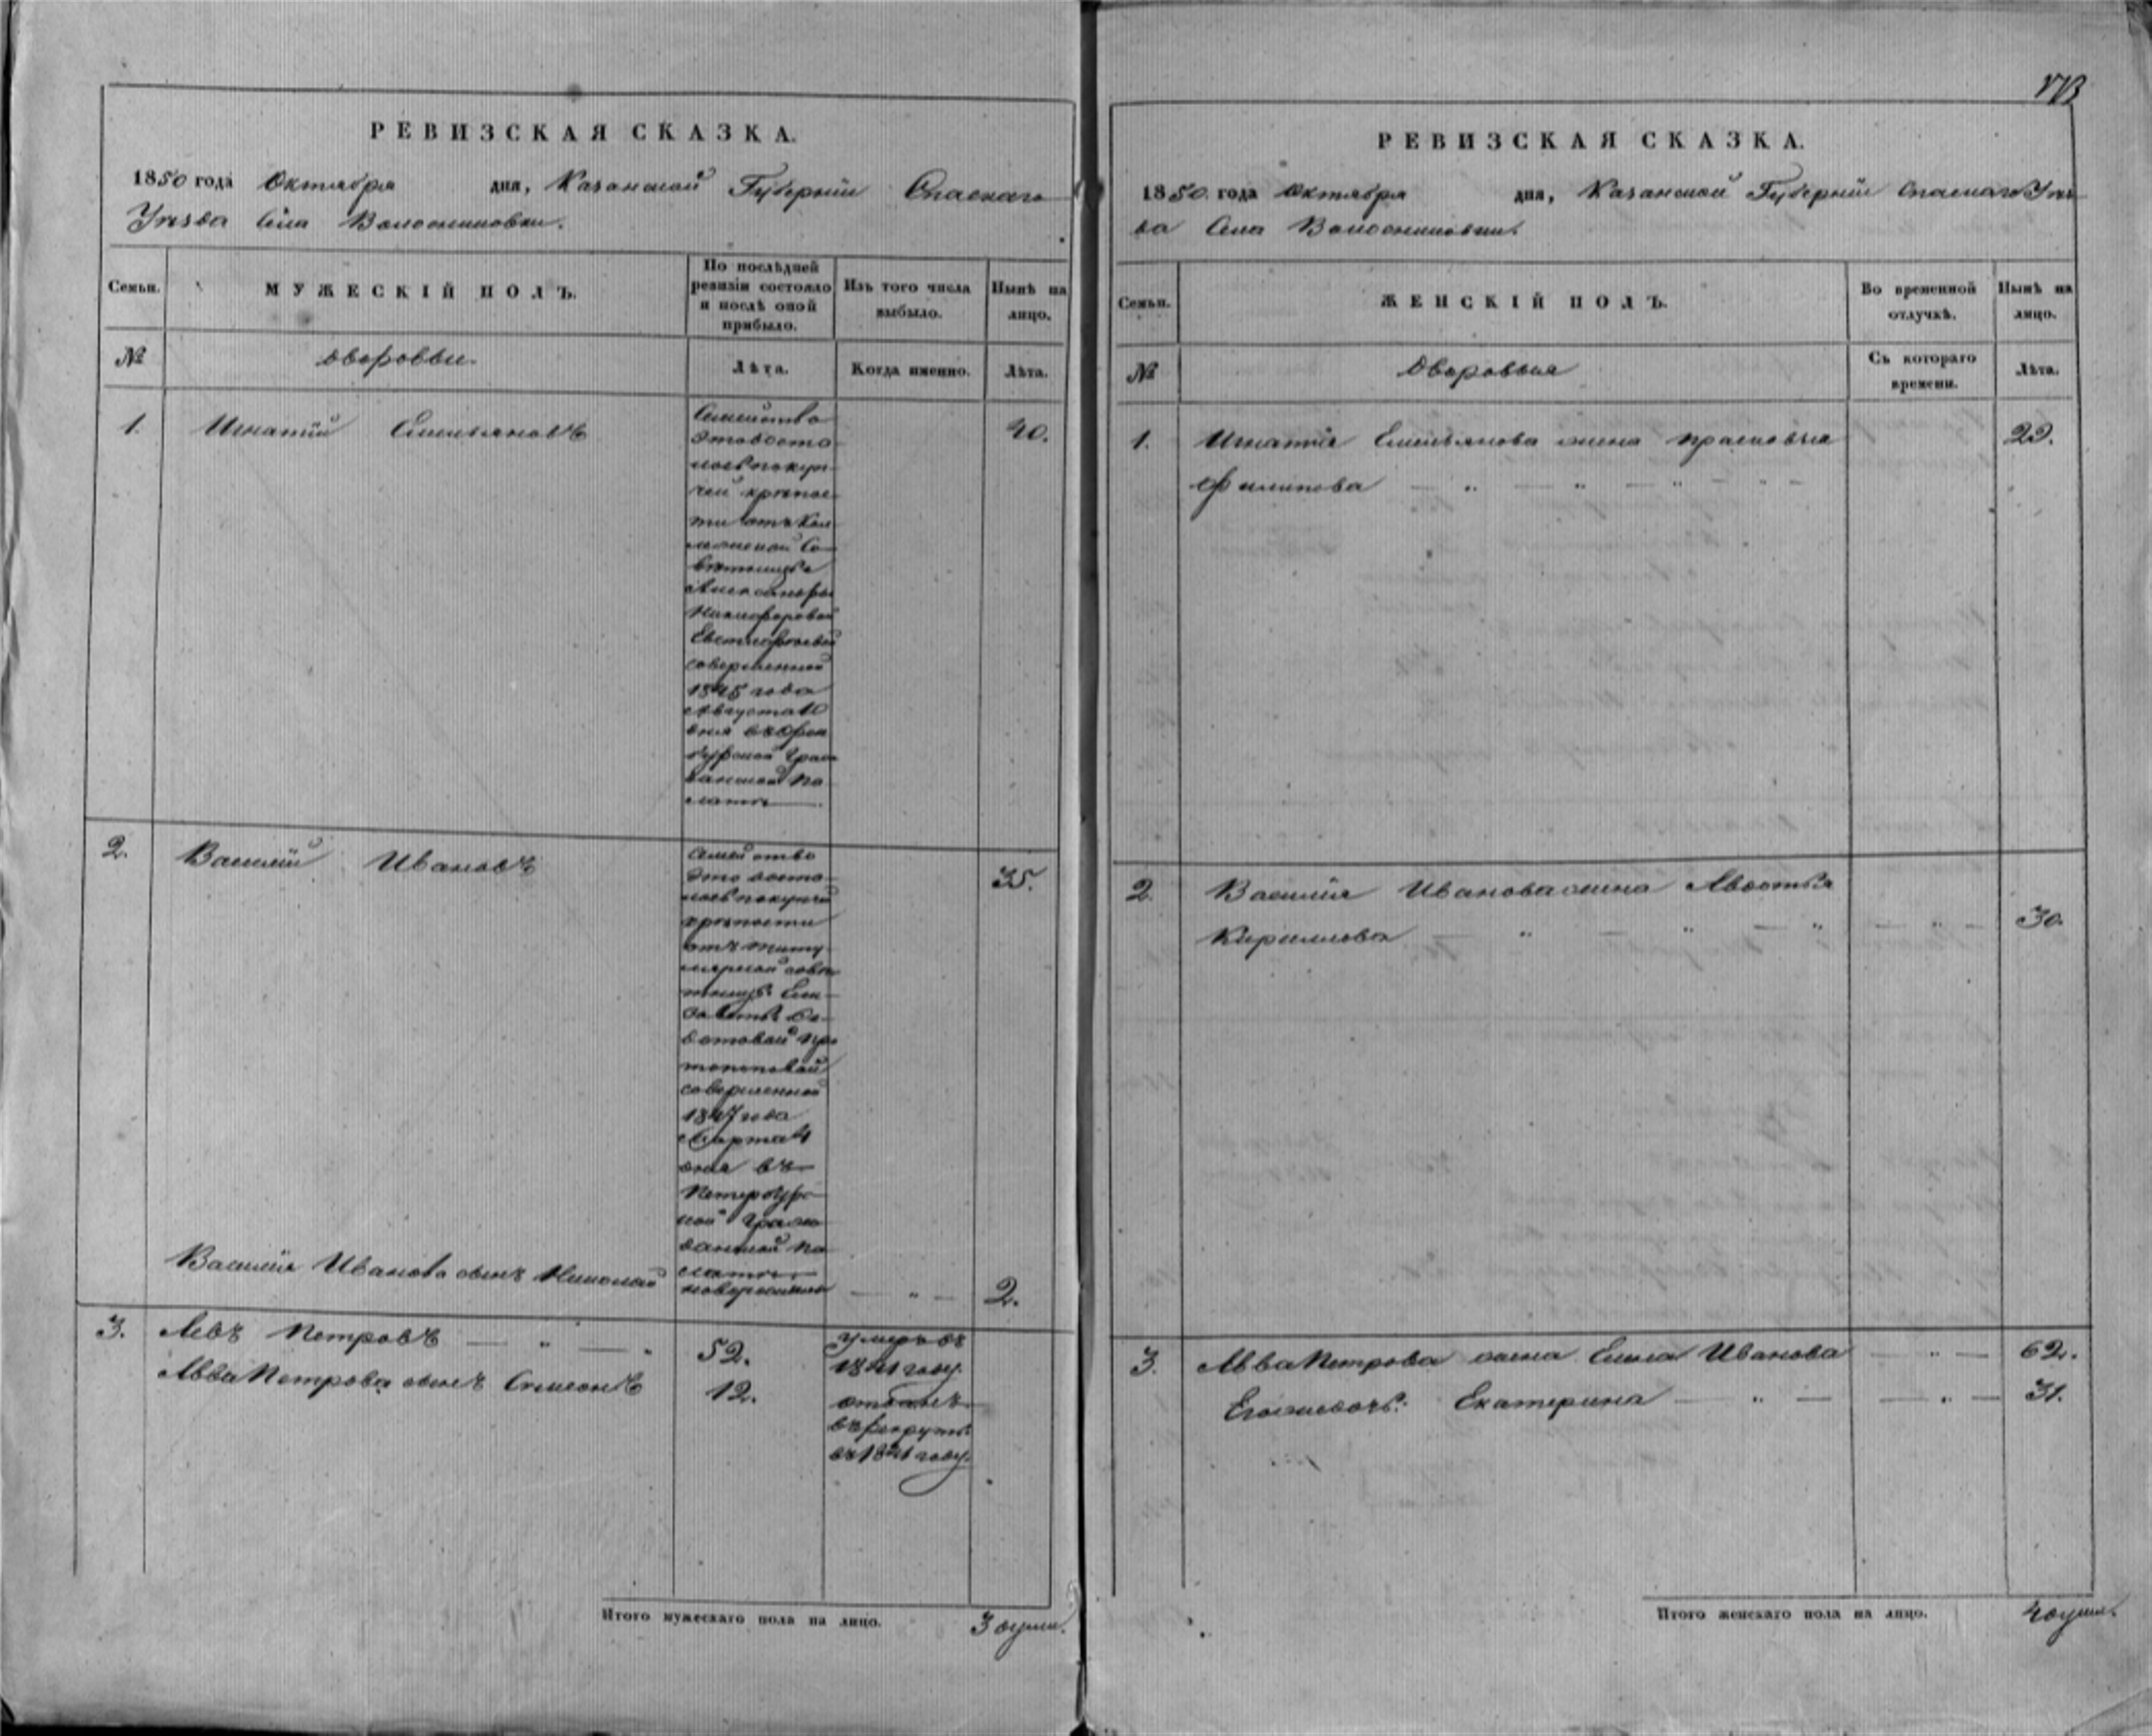 РЕВИЗСКАЯ СКАЗКА.
1850 года Октября дня, Казанской Губерніи Спаскаго
Уѣзда Села
МУЖЕСКІЙ ПОЛЪ.
Семьи.
По послѣдней
ревизіи состояло
и послѣ оной
прибыло.
Изъ того числа
выбыло.
Нынѣ на
лицо.
№
дворовыи
Лѣта.
Когда именно.
Лѣта.
1.
Игнатій Емельяновъ
40.
Семейство
это доста
лось по куп
чей крѣпос
ти отъ Кол
лежской Со
вѣтницы
Александры
Никифоровой
совершенной
184 года
Августа 10
дня въ Орен
бургской Граж
данской Па
латѣ
2.
Василій Ивановъ
35.
Семейство
это доста
лось по купчей
крѣпости
отъ титу
лярной совѣ
тницы Ели
заветы
совершенной
1847 года
Марта 4
дня въ
Петербургс
кой Граж
данской Па
латѣ
Василія Иванова сынъ Николай
новорожденъ — " —
2.
3.
Левъ Петровъ — " — "
52.
умеръ въ
1841 году.
Льва Петрова сынъ Симеонъ
12.
отданъ
въ рекруты
въ 1841 году.
Итого мужескаго пола на лицо.
3 души.
РЕВИЗСКАЯ СКАЗКА.
1850 года Октября дня, Казанской Губерніи Спаскаго Уѣз
да Села
Семьи.
ЖЕНСКІЙ ПОЛЪ.
Во временной
отлучкѣ.
Нынѣ на
лицо.
№
Дворовыя
Съ котораго
времени.
Лѣта.
1.
Игнатія Емельянова жена Прасковья
Филипова — " — " — " — " —
29.
2.
Василія Иванова жена Авдотья
Кирилова — " — " — " — " —
30.
3.
Льва Петрова жена Елена Иванова — " —
62.
Его же дочь: Екатерина — " — — " —
31.
Итого женскаго пола на лицо.
4 души.